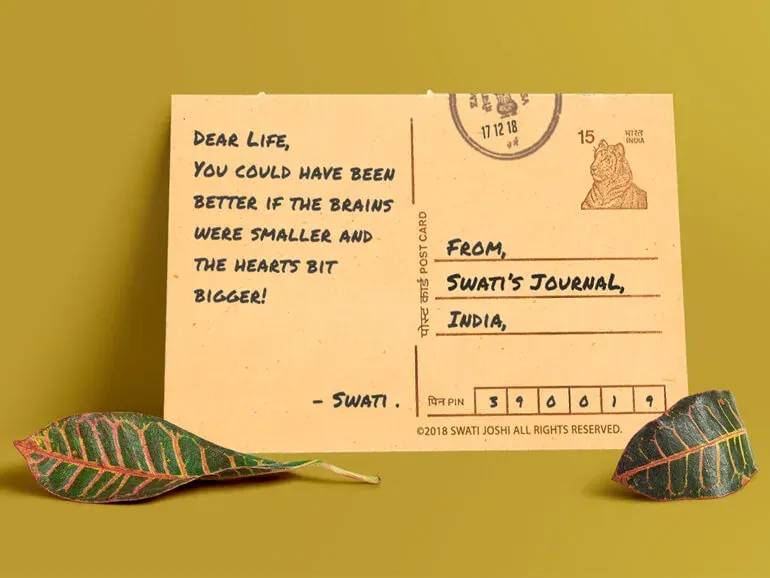 DEAR LIFE,
YOU COULD HAVE BEEN
BETTER IF THE BRAINS
WERE SMALLER AND
THE HEARTS BIT
BIGGER!
- SWATI .
पोस्ट कार्ड POST CARD
17 12 18
15 भारत
INDIA
FROM,
SWATI'S JOURNAL,
INDIA,
पिन PIN 3 9 0 0 1 9
©2018 SWATI JOSHI ALL RIGHTS RESERVED.